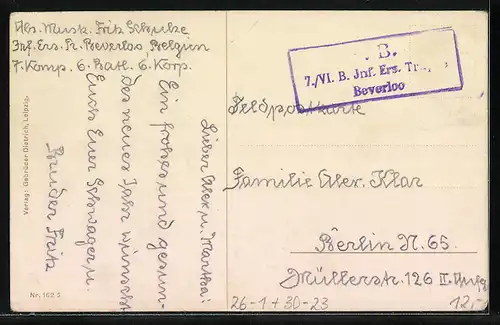 Abs. Musk. Fritz Schulze
Inf. Ers. Tr. Beverloo, Belgien
7. Komp. 6. Batl. 6. Korp.
Lieber Alex u. Martha!
Ein frohes und gesun-
des neues Jahr wünscht
Euch Euer Schwager u.
Bruder Fritz
Verlag: Gebrüder Dietrich, Leipzig.
Nr. 162 5
B.
7./VI. B. Jnf. Ers. Tr.
Beverloo
Feldpostkarte
Familie Alex. Klar
Berlin N. 65.
Müllerstr. 126 II.
26-1+30-23
12,-